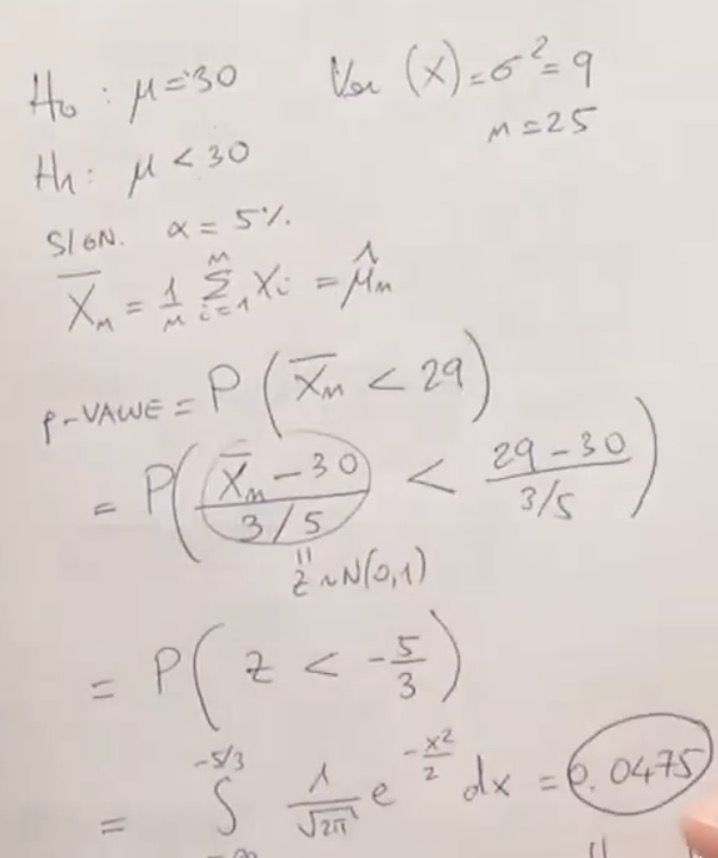 H₀ : μ = 30 Var (X) = σ² = 9
n = 25
H₁ : μ < 30
SIGN. α = 5%.
X̄ₙ = 1/n Σᵢ₌₁ⁿ Xᵢ = μ̂ₙ
p-VALUE = P ( X̄ₙ < 29 )
= P ( (X̄ₙ - 30) / (3/5) < (29 - 30) / (3/5) )
= Z ~ N(0,1)
= P ( Z < -5/3 )
= ∫_{-∞}^{-5/3} 1/√(2π) e^{-x²/2} dx = 0.0475